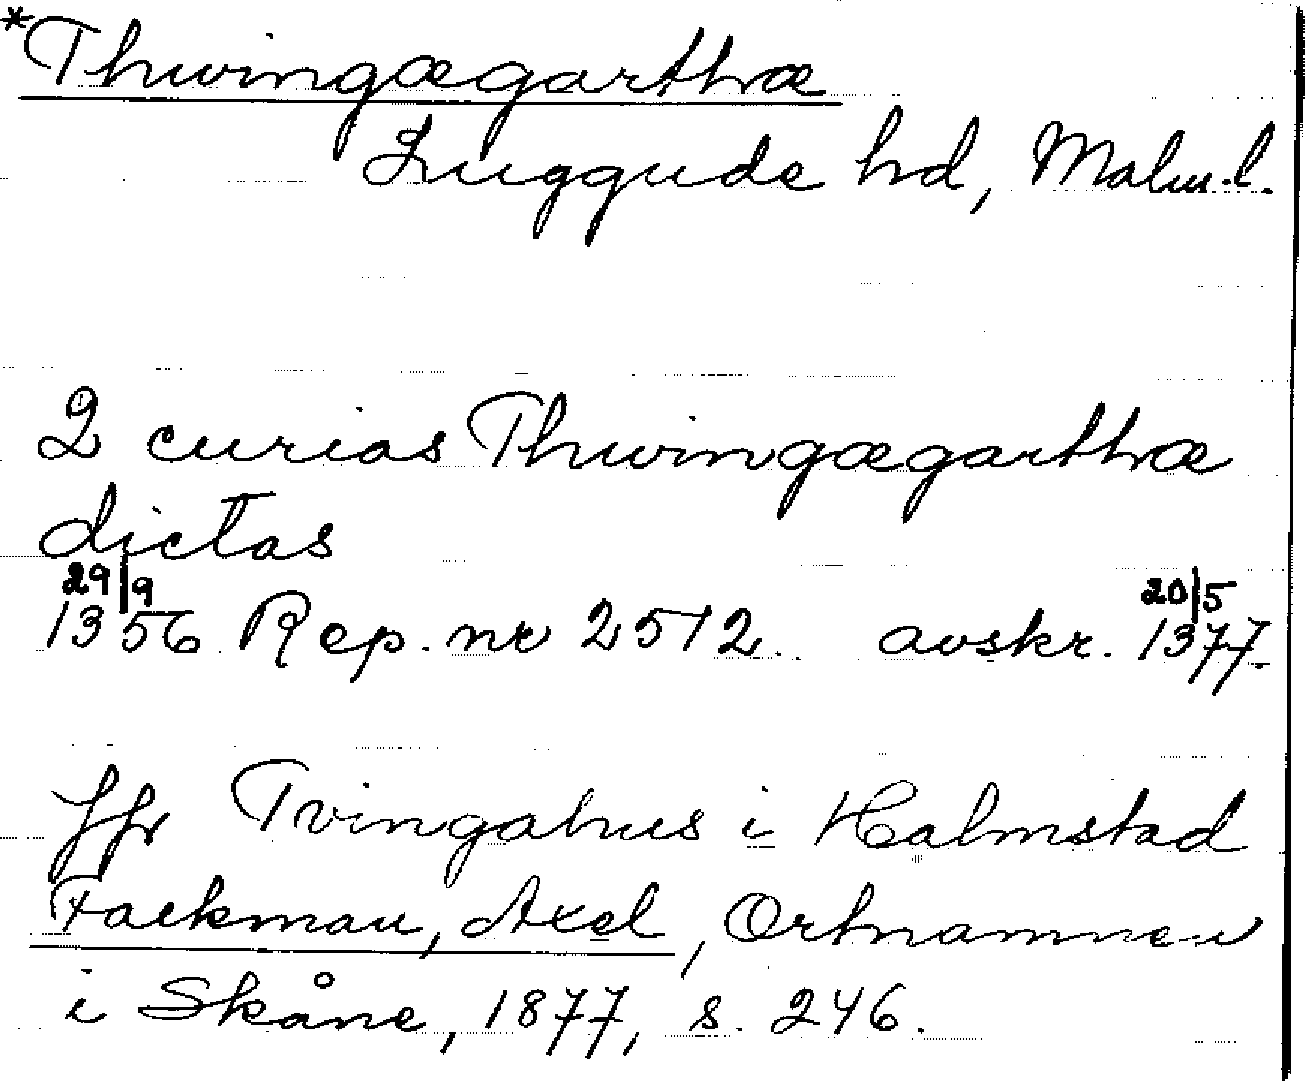 *Thwingægarthæ
Luggude hd, Malm.l.
2 curias Thwingægarthæ
dictas
29/9 1356 Rep. nr 2512. avskr. 20/5 1377.
Jfr Tvingahus i Halmstad
Falkman, Axel, Ortnamnen
i Skåne, 1877, s. 246.